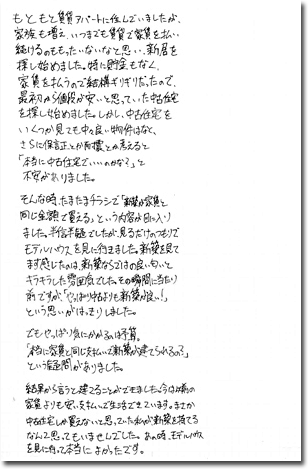 もともと賃貸アパートに住んでいましたが、
家族も増え、いつまでも賃貸で家賃を払い
続けるのももったいないなと思い、新居を
探し始めました。特に貯金もなく、
家賃を払うので結構ギリギリだったので、
最初から値段が安いと思っていた中古住宅
を探し始めました。しかし、中古住宅を
いくつか見ても中々良い物件はなく、
さらに保証とか耐震とか考えると
「本当に中古住宅でいいのかな?」と
不安がありました。
そんな時、たまたまチラシで「新築が家賃と
同じ金額で買える」という内容が目に入り
ました。半信半疑でしたが、見るだけのつもりで
モデルハウスを見に行きました。新築を見て
まず感じたのは、新築ならではの良い匂いと
キラキラした雰囲気でした。その瞬間に当たり
前ですが、「やっぱり中古よりも新築が良い!」
という思いがはっきりしました。
でもやっぱり気にかかるのは予算。
「本当に家賃と同じ支払いで新築が建てられるの?」
という疑問がありました。
結果から言うと建てることができました。今は前の
家賃よりも安い支払いで生活できています。まさか
中古住宅しか買えないと思っていた私が新築を持てる
なんて思ってもいませんでした。あの時、モデルハウス
を見に行って本当によかったです。